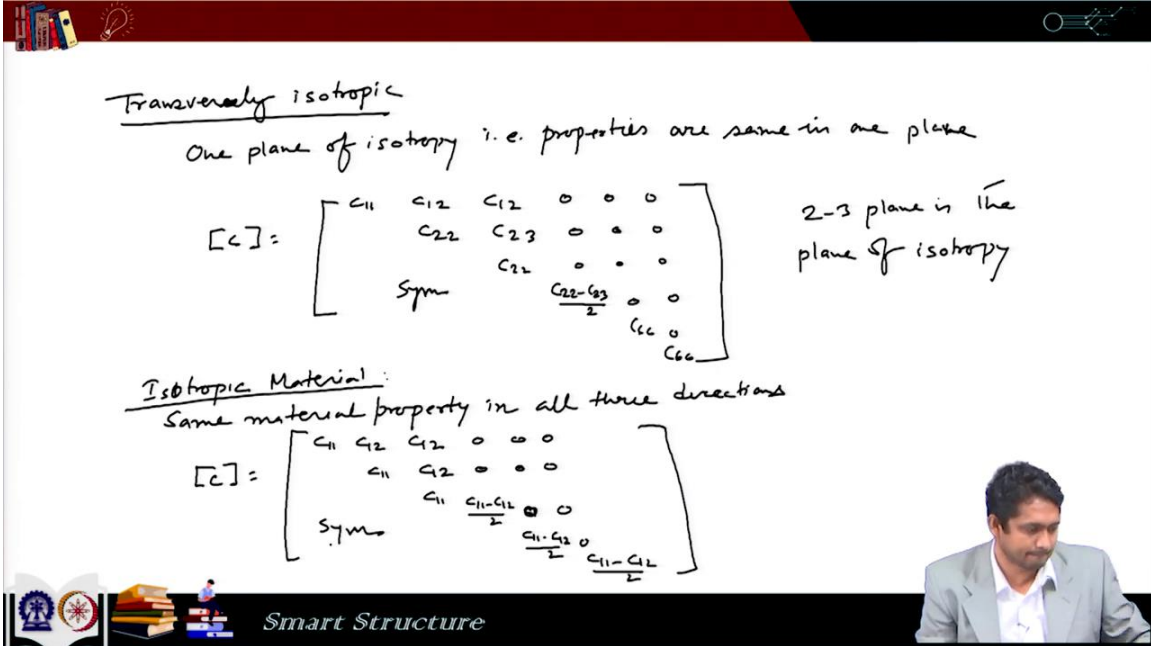 Transversely isotropic
One plane of isotropy i.e. properties are same in one plane
[C] =
C11 C12 C12 0 0 0
C22 C23 0 0 0
C22 0 0 0
Sym (C22-C23)/2 0 0
C66 0
C66
2-3 plane is the
plane of isotropy
Isotropic Material:
Same material property in all three directions
[C] =
C11 C12 C12 0 0 0
C11 C12 0 0 0
C11 (C11-C12)/2 0 0
Sym (C11-C12)/2 0
(C11-C12)/2
Smart Structure